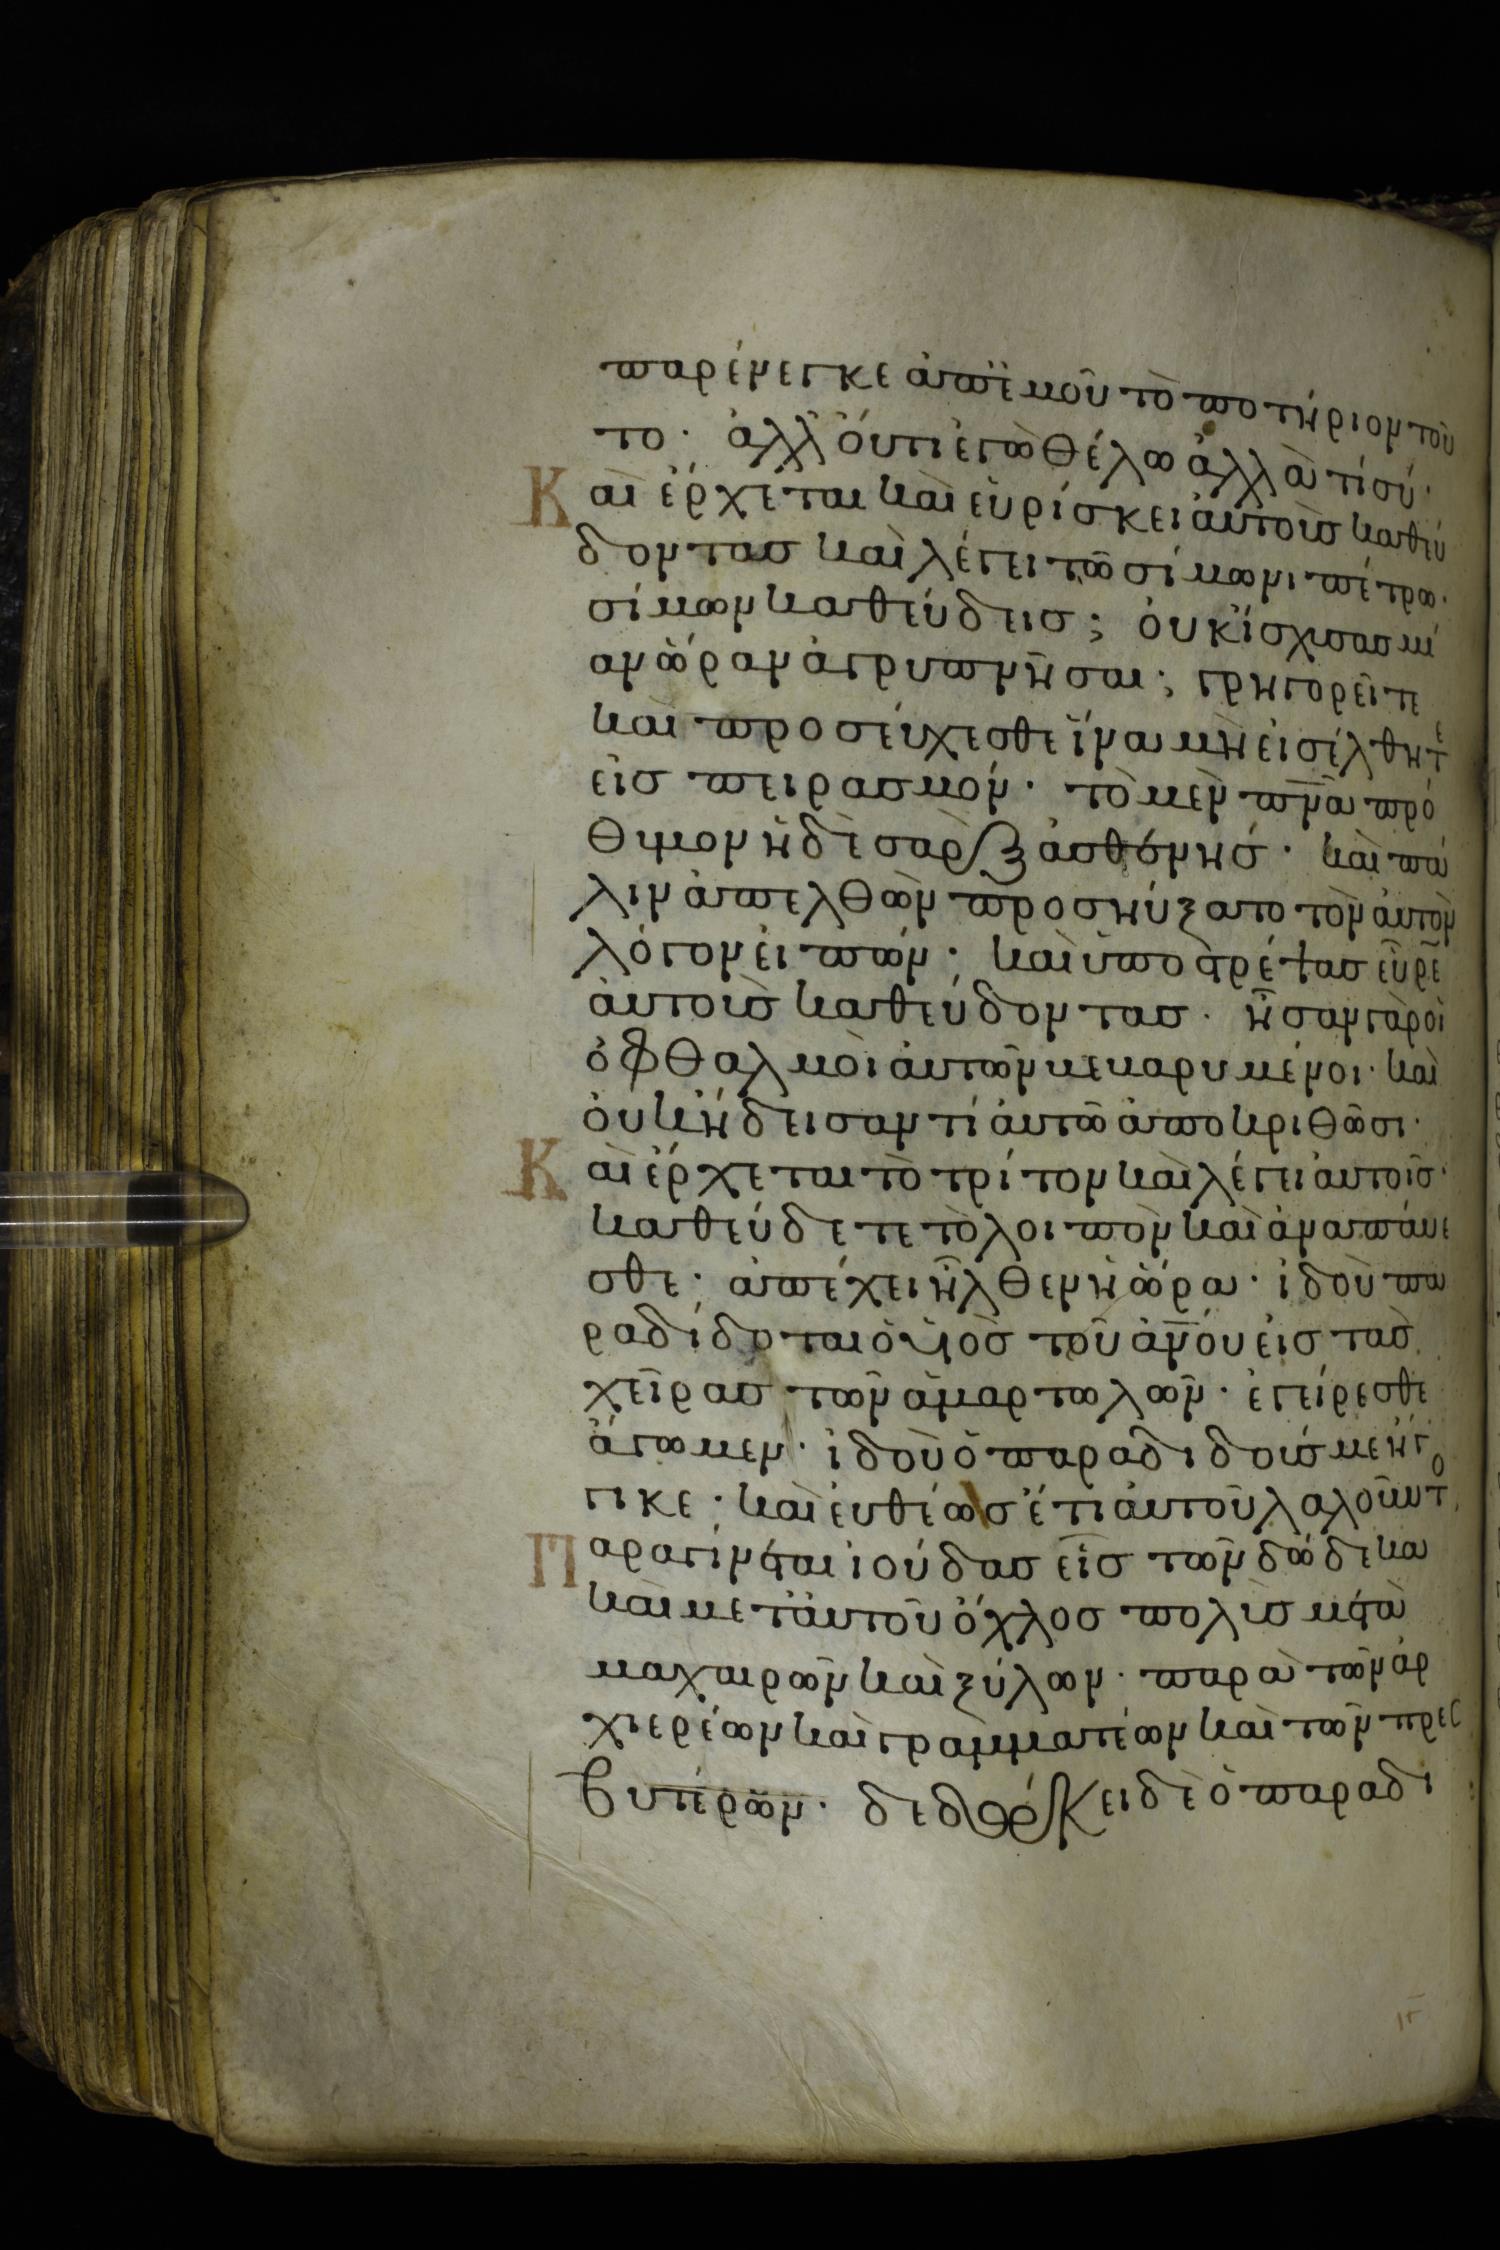 παρένεγκε ἀπ' ἐμοῦ τὸ ποτήριον τοῦ
το· ἀλλ' ὄυ τι ἐγὼ θέλω ἀλλὰ τί σύ·
Καὶ ἔρχεται καὶ εὑρίσκει ἀυτοὺς καθεύ
δοντασ καὶ λέγει τῶ σίμωνι πέτρω·
σίμων καθεύδεισ; ὀυκ ἴσχυσασ μί
αν ὥραν ἀγρυπνῆσαι; γρηγορεῖτε
καὶ προσεύχεσθε ἵνα μὴ εἰσέλθητε
εἰσ πειρασμόν· τὸ μὲν πνᾶ πρό
θυμον ἡ δὲ σὰρξ ἀσθενήσ· καὶ πά
λιν ἀπελθὼν προσηύξατο τὸν ἀυτὸν
λόγον εἰπών· καὶ ὑποστρέψασ εὗρεν
ἀυτοὺσ καθεύδοντασ· ἦσαν γὰρ οἱ
ὀφθαλμοὶ ἀυτῶν κεκαρυμένοι· καὶ
ὀυκ ἤδεισαν τί ἀυτῶ ἀποκριθῶσι·
Καὶ ἔρχεται τὸ τρίτον καὶ λέγει ἀυτοῖσ·
καθεύδετε τὸ λοιπὸν καὶ ἀναπάυε
σθε· ἀπέχει ἦλθεν ἡ ὥρα· ἰδοὺ πα
ραδίδοται ὁ υἱὸσ τοῦ ἀνου εἰσ τὰσ
χεῖρασ τῶν ἁμαρτωλῶν· ἐγείρεσθε
ἄγωμεν· ἰδοὺ ὁ παραδιδούσ με ἤγ
γικε· καὶ ἐυθέωσ ἔτι ἀυτοῦ λαλοῦντο
Παραγίνεται ἰούδασ εἷσ τῶν δώδεκα
καὶ μετ' ἀυτοῦ ὄχλοσ πολὺσ μετὰ
μαχαιρῶν καὶ ξύλων· παρὰ τῶν ἀρ
χιερέων καὶ γραμματέων καὶ τῶν πρεσ
βυτέρων· δεδώκει δὲ ὁ παραδι